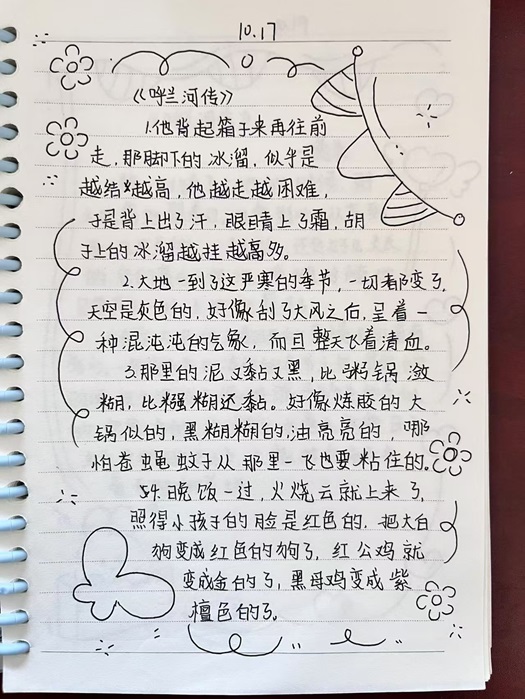 10.17
《呼兰河传》
1.他背起箱子来再往前
走，那脚下的冰溜，似乎是
越结越高，他越走越困难，
于是背上出了汗，眼睛上了霜，胡
子上的冰溜越挂越高多。
2.大地一到了这严寒的季节，一切都变了，
天空是灰色的，好像刮了大风之后，呈着一
种混沌沌的气象，而且整天飞着清血。
3.那里的泥又黏又黑，比粥锅潋
糊，比糨糊还黏。好像炼胶的大
锅似的，黑糊糊的，油亮亮的，哪
怕苍蝇蚊子从那里一飞也要粘住的。
4.晚饭一过，火烧云就上来了，
照得小孩子的脸是红色的，把大白
狗变成红色的狗了，红公鸡就
变成金的了，黑母鸡变成紫
檀色的了。